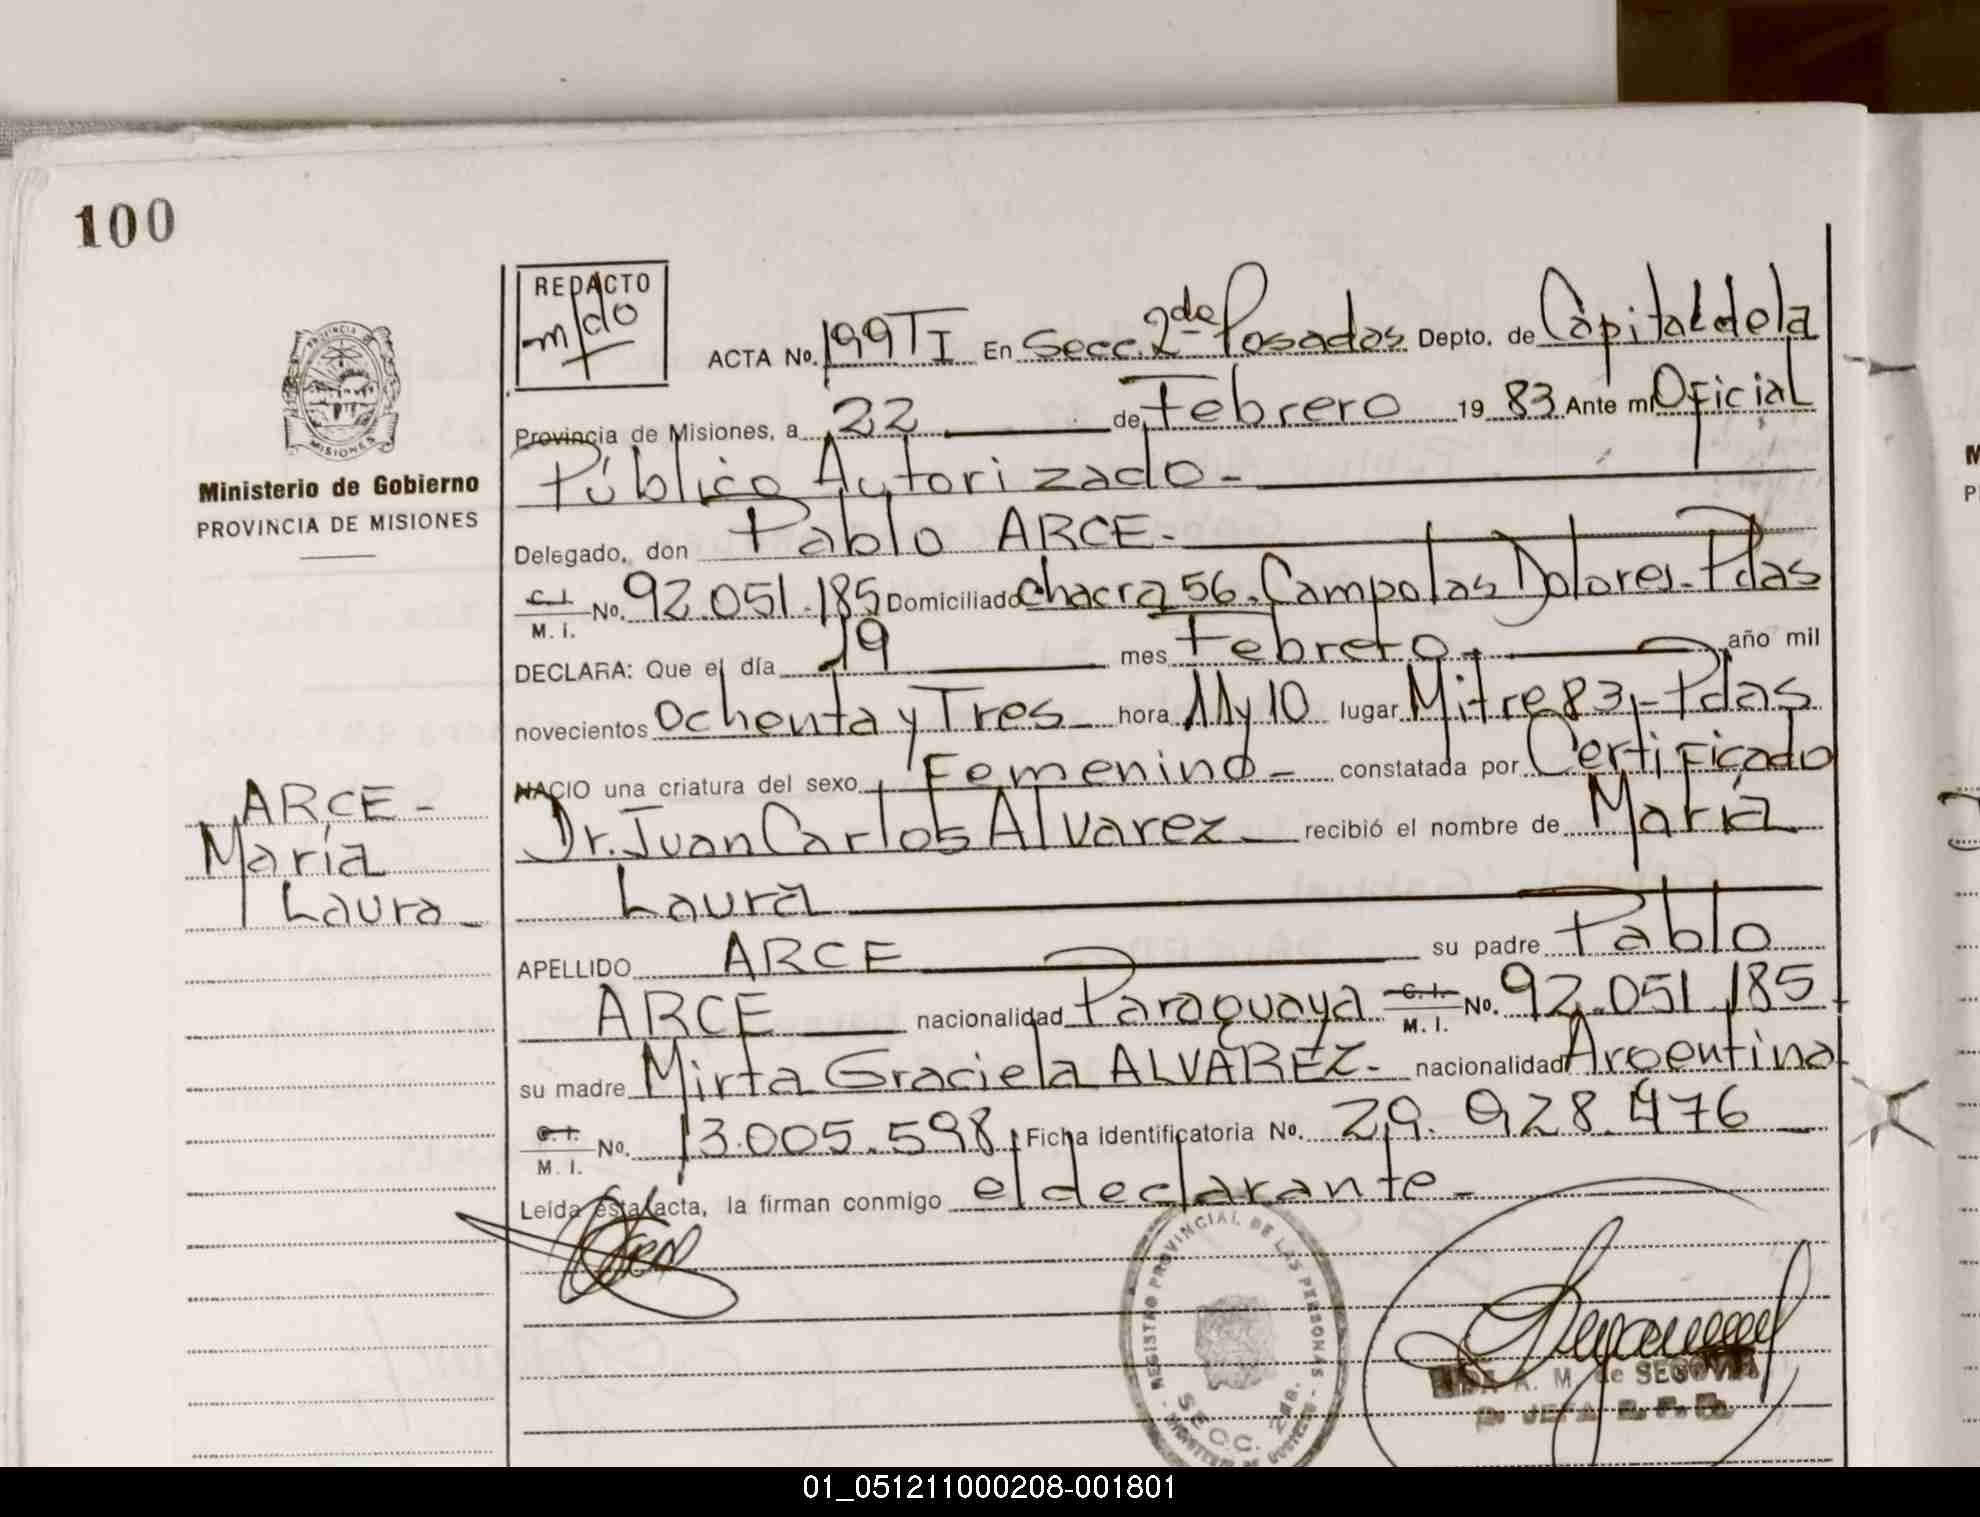 100
REDACTO
m/do
ACTA No. 199 TI En Secc. 2da Posadas Depto. de Capital de la
Provincia de Misiones, a 22 de Febrero 19 83 Ante mi Oficial
Público Autorizado -
PROVINCIA DE
MISIONES
Ministerio de Gobierno
PROVINCIA DE MISIONES
Delegado, don Pablo ARCE -
C. I. / M. I. No. 92.051.185 Domiciliado Chacra 56. Campo las Dolores - Pdas
DECLARA: Que el día 19 mes Febrero - año mil
novecientos Ochenta y Tres - hora 11 y 10 lugar Mitre 83,- Pdas
NACIO una criatura del sexo Femenino - constatada por Certificado
Dr. Juan Carlos Alvarez - recibió el nombre de María
Laura
ARCE -
María
Laura -
APELLIDO ARCE su padre Pablo
ARCE nacionalidad Paraguaya C. I. / M. I. No. 92.051.185
su madre Mirta Graciela ALVAREZ - nacionalidad Argentina
C. I. / M. I. No. 13.005.598 Ficha identificatoria No. 29.928.476
Leída esta acta, la firman conmigo el declarante -
REGISTRO PROVINCIAL DE LAS PERSONAS
SECC. 2da.
A. M. de SEGOVIA
01_051211000208-001801